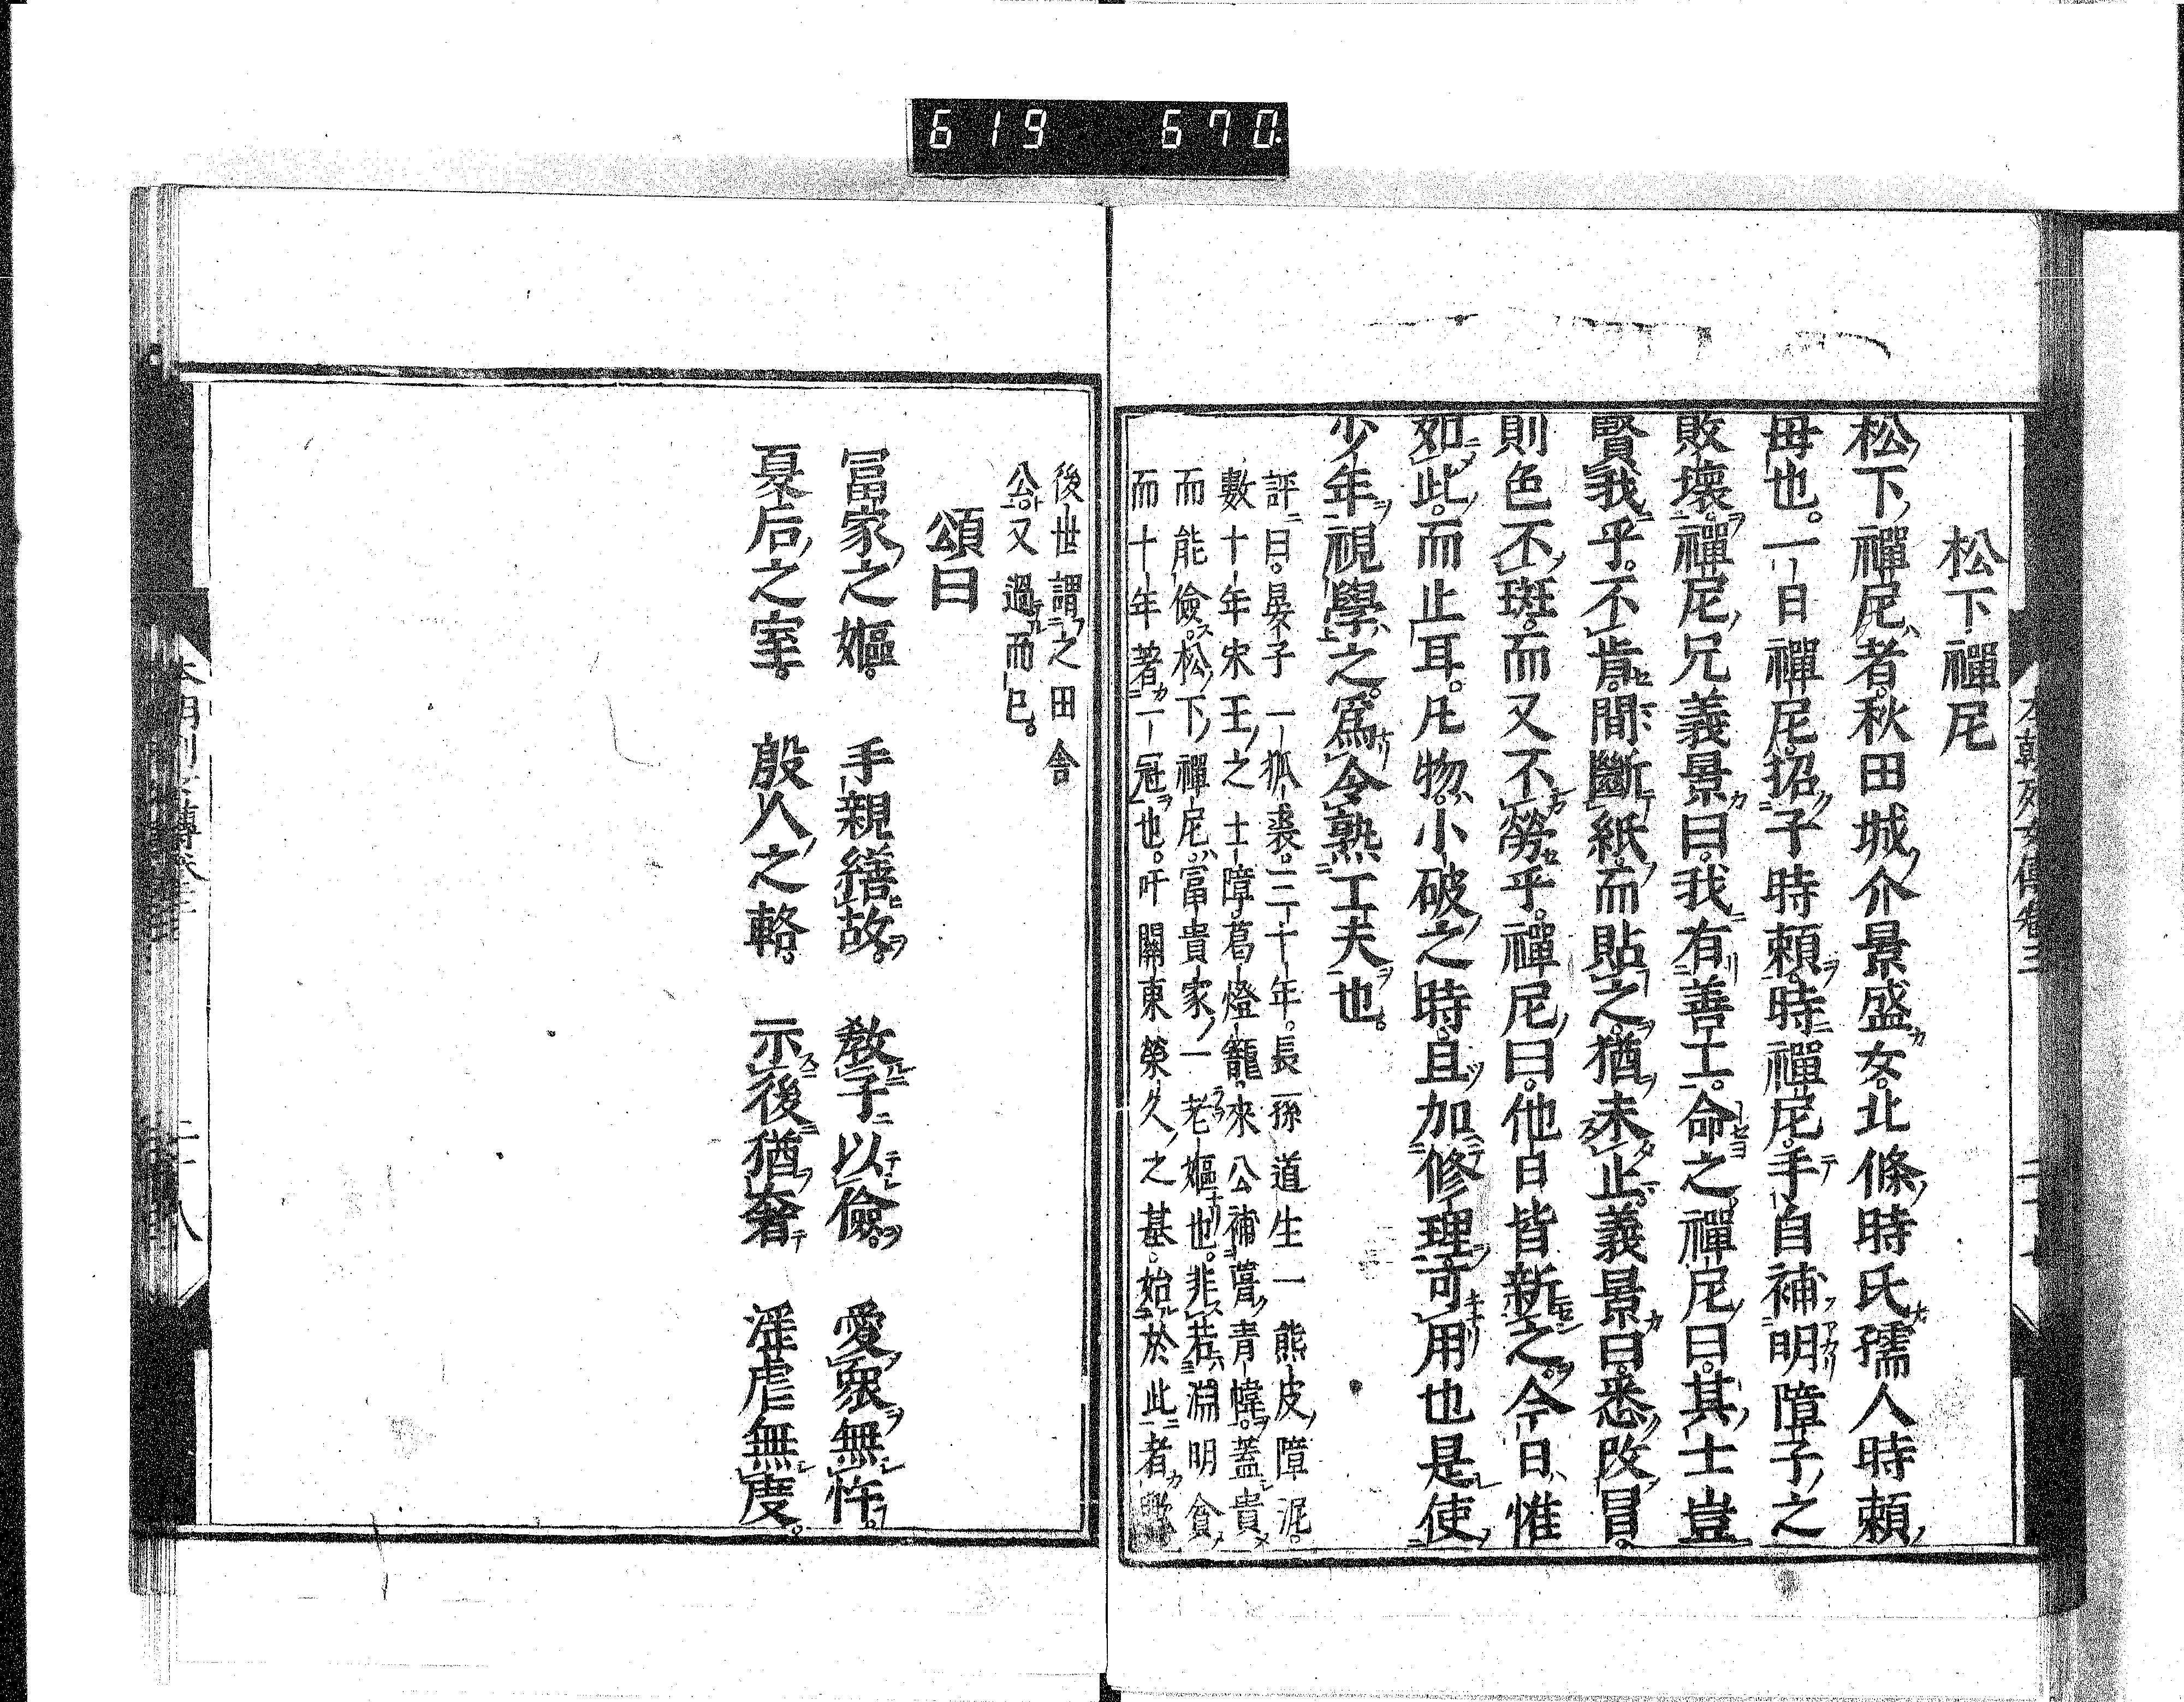 619 670
本朝列女傳卷三
松下禪尼
松下禪尼者。秋田城介景盛女。北條時氏孺人時頼
毋也。一日禪尼招子時頼。時禪尼手自補明障子之
敗壞。禪尼兄義景曰。我有善工。命之。禪尼曰。其士豈
賢我乎。不肯。間斷紙而貼之。猶未止。義景曰。悉改冒。
則色不斑。而又不勞乎。禪尼曰。他日皆新之。今日惟
如此。而止耳。凡物小破之時。且加修理可用也是使
少年視學之。爲令熟工夫也。
評曰。晏子一狐裘。三十年。長孫道生一熊皮障泥。
數十年宋王之士障葛燈籠。來公補舊青幃。蓋貴
而能儉。松下禪尼。富貴家一老嫗也。非若淵明貧
而十年著一冠也。吁關東榮久之基。始於此者歟
後世謂之田舎
公。又過而已。
頌曰
冨家之嫗。手親繕故。敎子以儉。愛衆無忤。
夏后之室。殷人之輅。示後猶奢。淫虐無度。
二十八